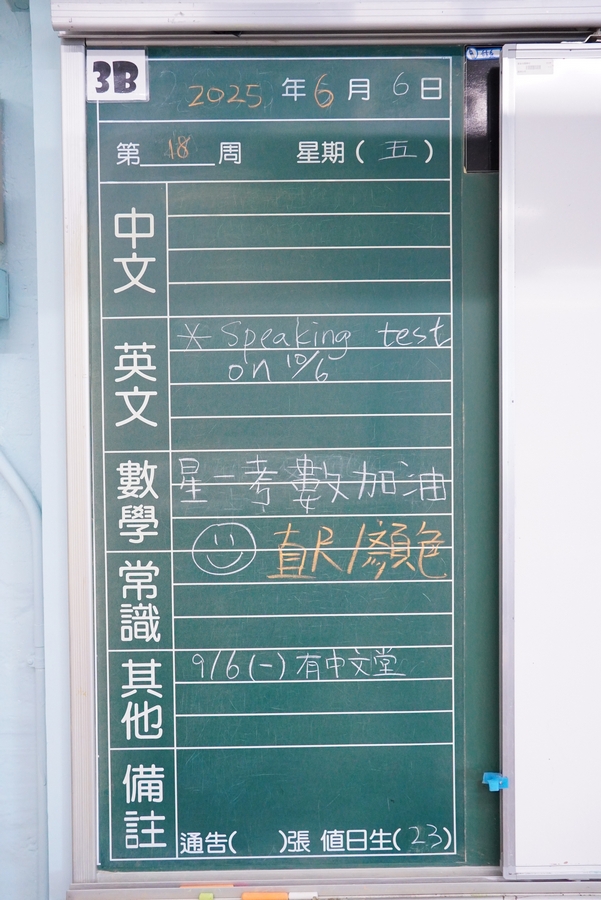 3B
2025年6月6日
第18周 星期(五)
中文
英文
* Speaking test
on 10/6
數學
星一考數加油
直尺/顏色
常識
其他
9/6(一)有中文堂
備註
通告( )張 值日生(23)